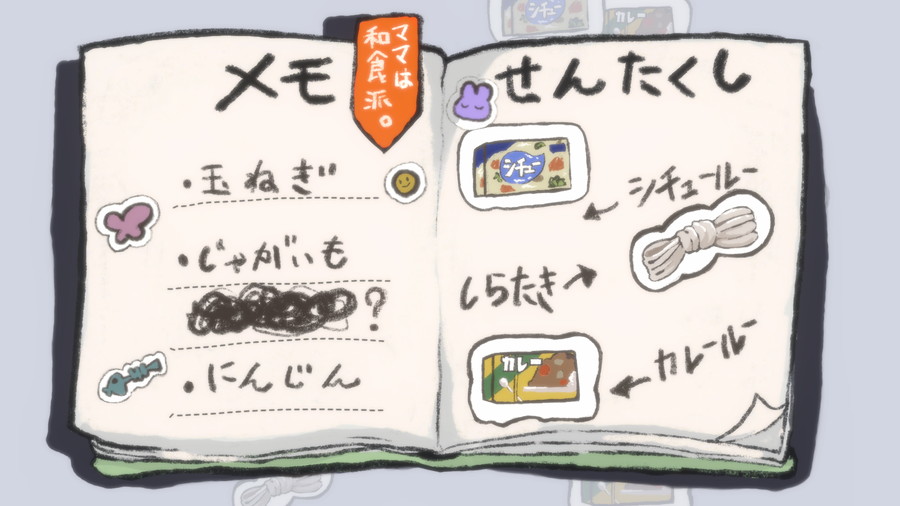 メモ
ママは
和食派。
・玉ねぎ
・じゃがいも
?
・にんじん
せんたくし
シチュー
シチュールー
しらたき
カレー
カレールー